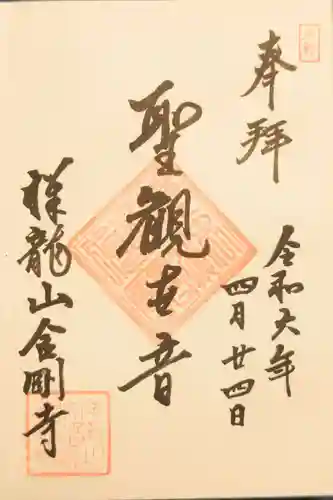 奉拝
令和六年
四月廿四日
聖観世音
祥龍山金剛寺